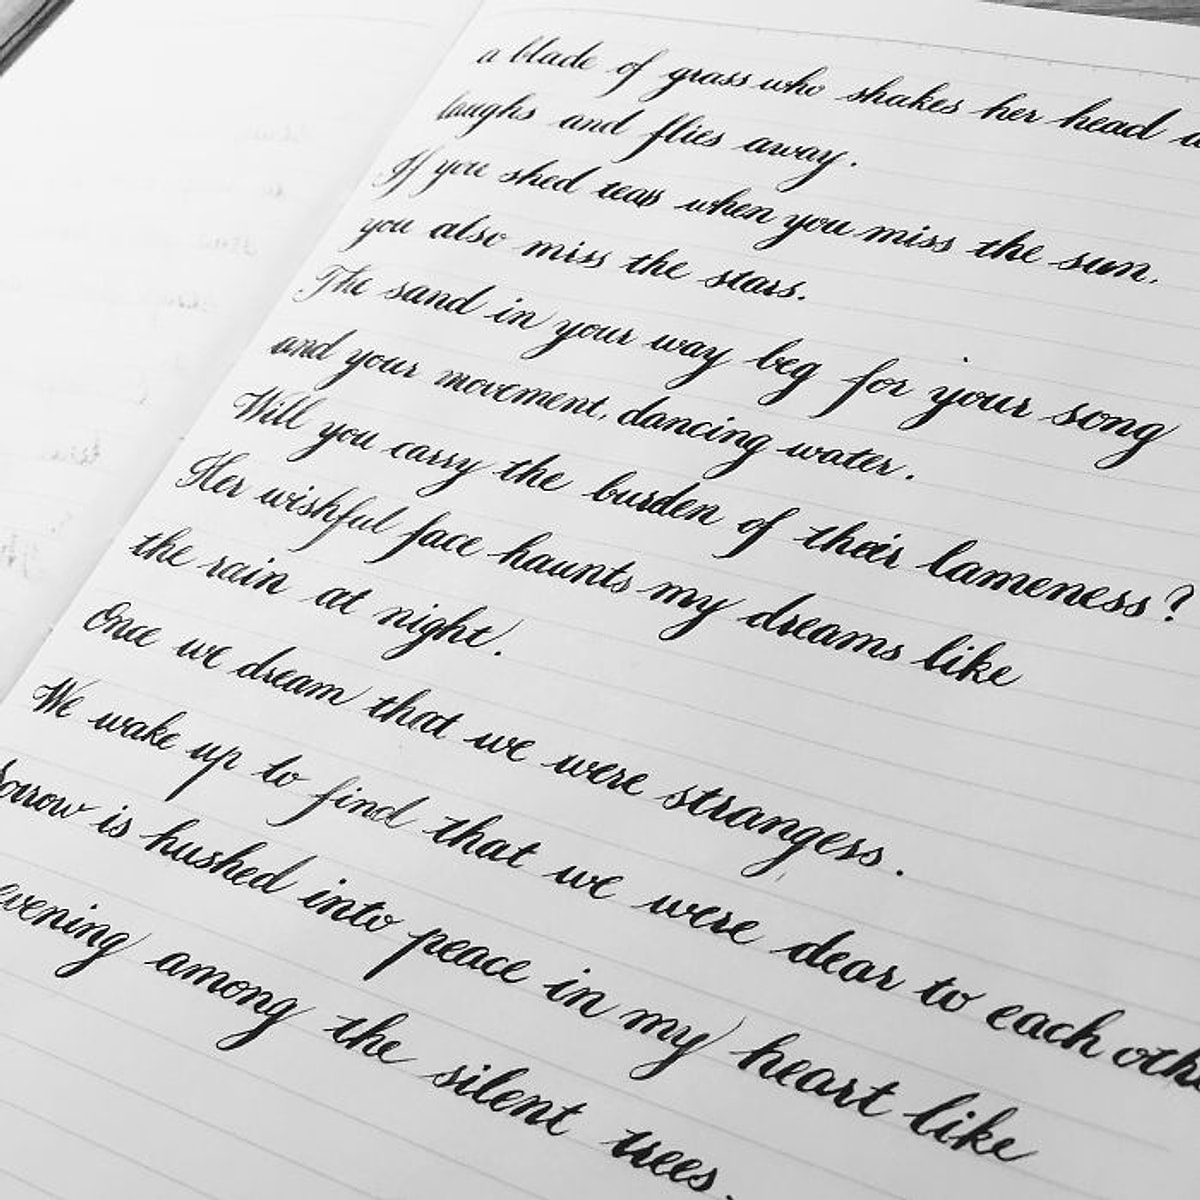 a blade of grass who shakes her head
laughs and flies away.
If you shed tears when you miss the sun,
you also miss the stars.
The sand in your way beg for your song
and your movement, dancing water.
Will you carry the burden of their lameness?
Her wishful face haunts my dreams like
the rain at night.
Once we dream that we were strangers.
We wake up to find that we were dear to each othe
Sorrow is hushed into peace in my heart like
evening among the silent trees.